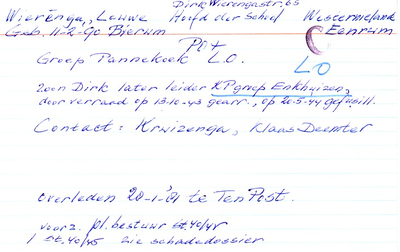 Dirk Wierengastr. 65
Wierenga, Leuwe Hoofd der School Westernieland
Geb. 11-2-90 Bierum Eenrum
Groep Pannekoek L.O.
LO
Zoon Dirk later leider KP groep Enkhuizen,
door verraad op 13-10-43 gearr., op 20-5-44 gefusill.
Contact: Kruizenga, Klaas Deemter
overleden 20-1-'81 te Ten Post.
voorz. pl. bestuur St. 40/45
1 St. 40/45 zie schadedossier